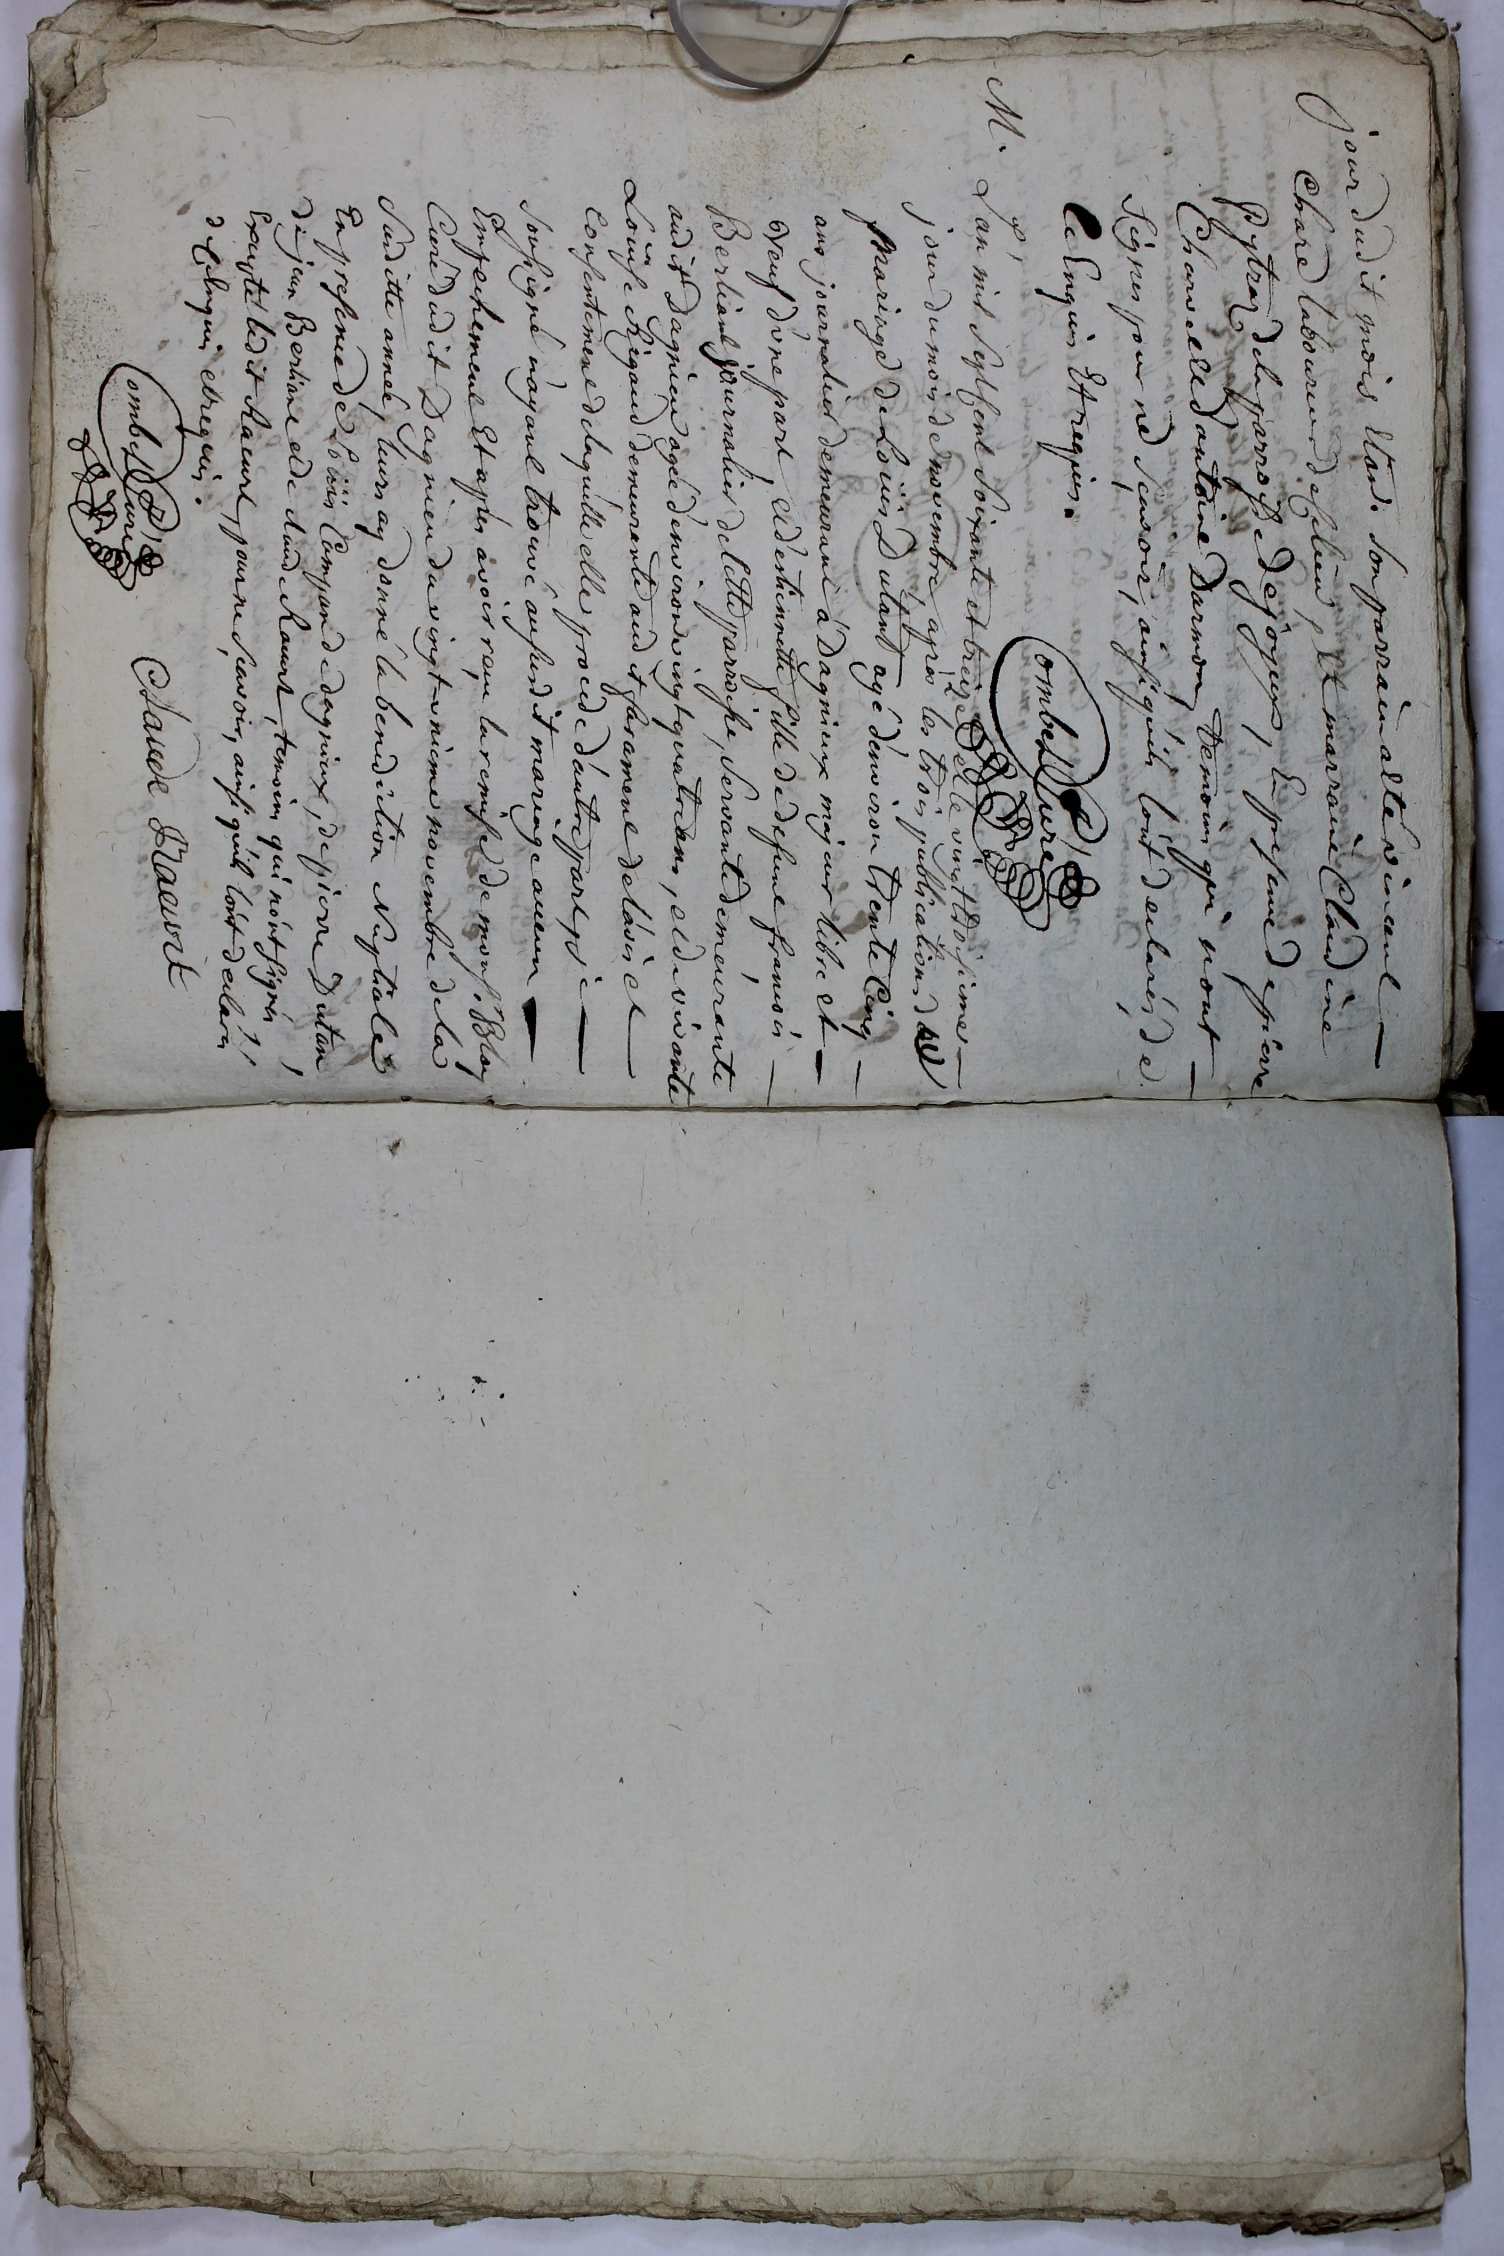 jour dudit mois Etant. Son parrain alté vincent
chare laboureur de cs lieu, et marraine Claudine
Pytraz de la parroisse de joyeux, En presence de pierre
Chavelle d antoine Darmon, temoins qui n'ont
Signes pour ne Scavoir, ainsi quils l'ont declarés de
ce Enquis Et requis.
ombet Curé
M. L'an mil Sept Cent Soixante et treize et le vingt troisieme
jour du mois de novembre apres les trois publications de
Mariage de Loüis Dutant agé d'environ trente Cinq
ans journalier demeurant a Dagnieux majeur libre et
veuf d'vne part, Et d'estiennette fille de defunt francois
Berliant journalier de cette parroisse, Servante demeurante
audit Dagnieu agée d'environ vingt quatre ans, et de vivante
Loüise Rigaud demeurante audit faramant de l'avis et
Consentement de laquelle elle procede d'autre part, je
Soussigné n'ayant trouvé au susdit mariage aucun
Empechement Et apres avoir reçu la remise de mons.r Bloy
Curé dudit Dagnieu du vingt unieme novembre de la
Susditte année, leurs ay donné la benediction Nuptiale
En presence de Loüis Compand de dagnieux, de pierre Dutan
de jean Berliant et de claude Raeurt, temoins qui n'ont signés,
Excepté ledit Raeurt, pour ne Scavoir, ainsi quils l'ont declarés
de ce Enquis et requis.
ombet Curé
Claude Raeurt